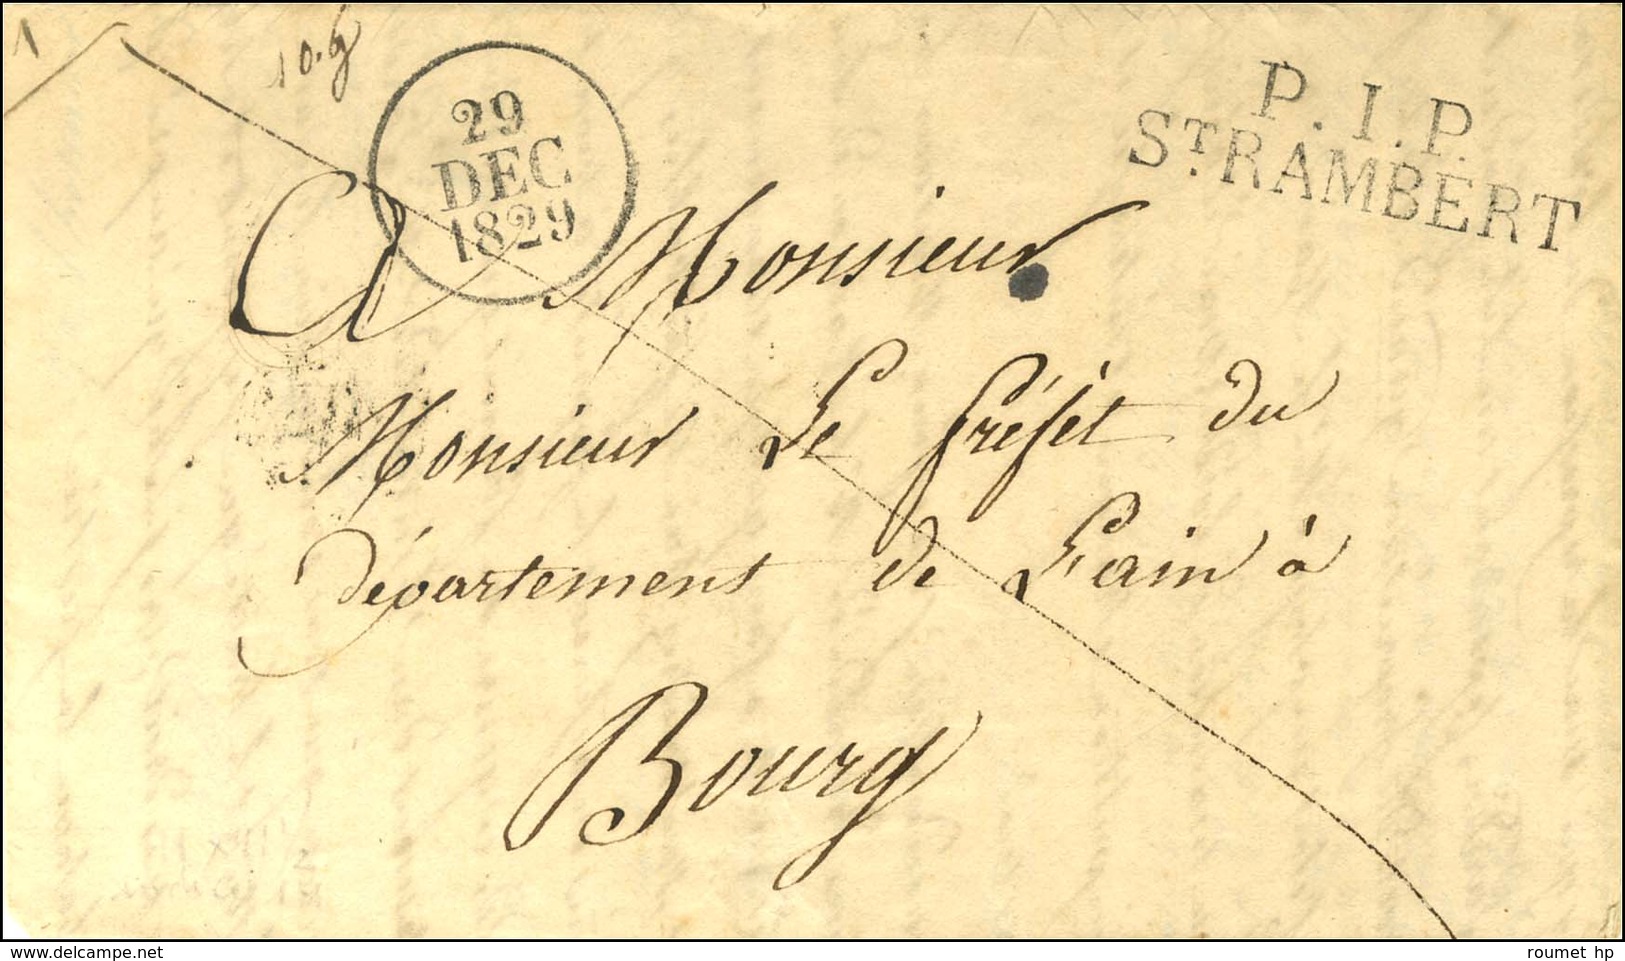 1
10. g
29
DEC
1829
P.I.P.
ST.RAMBERT
A Monsieur
Monsieur Le Préfèt du
département de L'ain à
Bourg
roumet hp